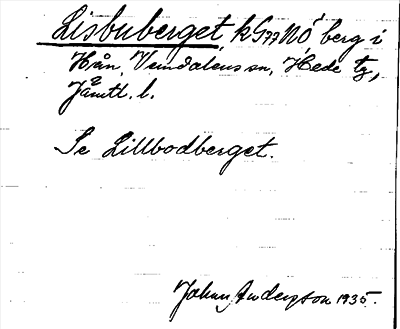 Lisbuberget kG77NÖ berg i
Hån, Vemdalens sn, Hede tg,
Jämtl. l.
Se Lillbodberget.
Johan Anderson 1935.